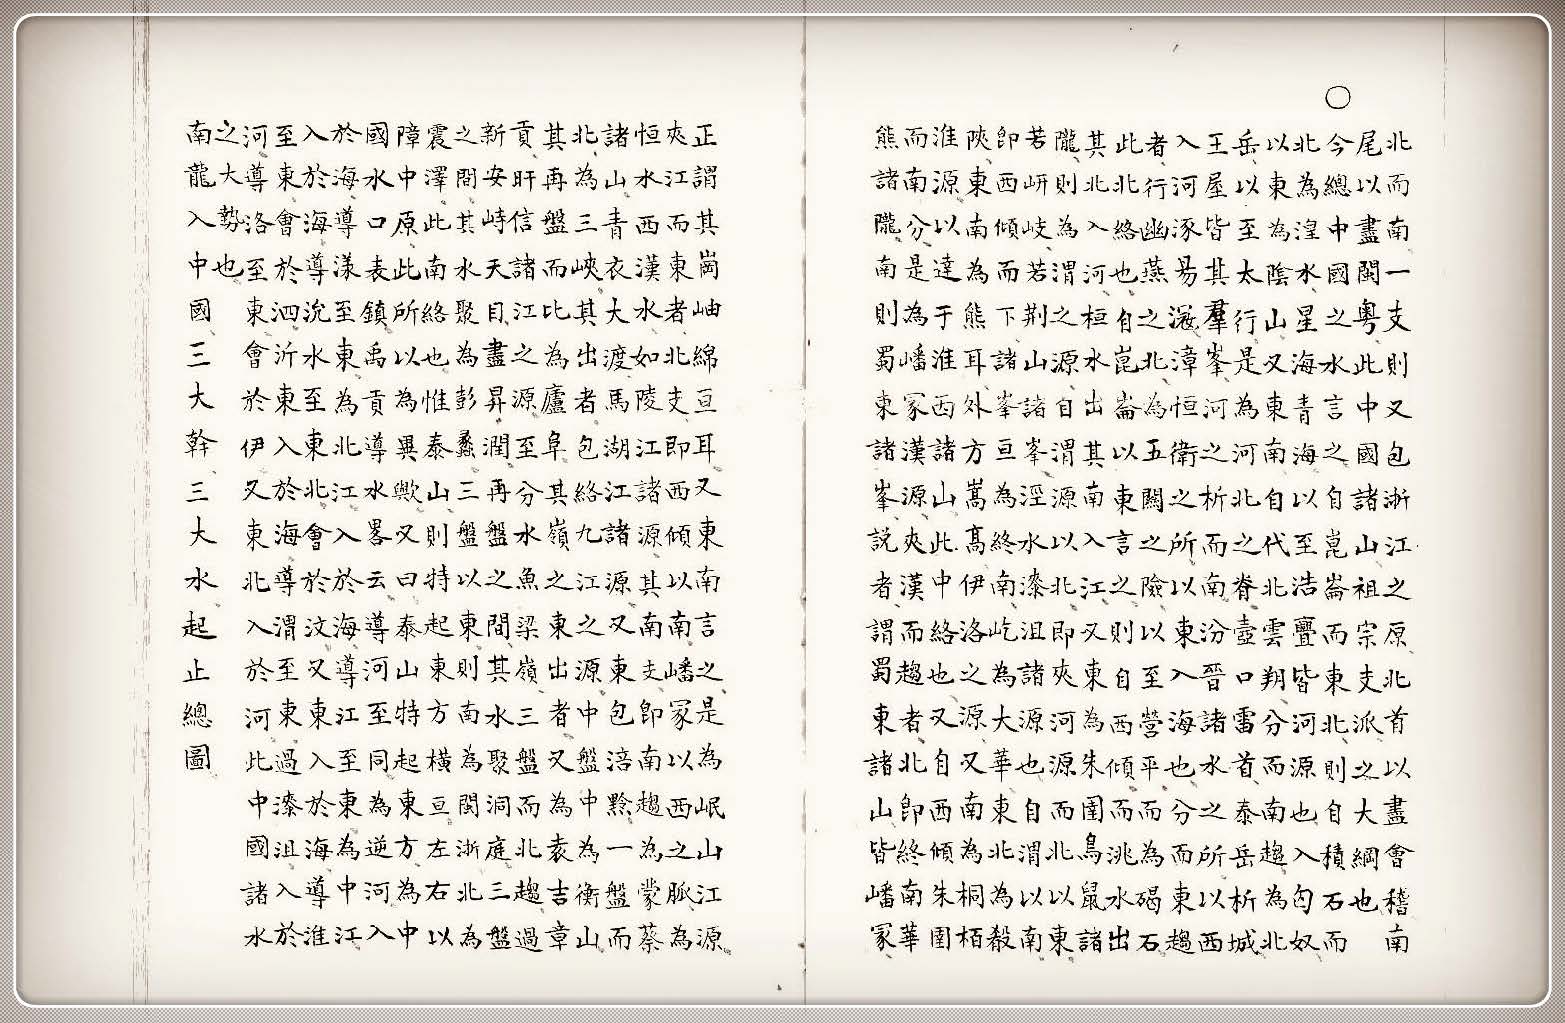 ○
北而南一支則又包浙江之原北首以盡會稽南
尾以盡閩粵此中國諸山祖宗支派之大綱也
今總中國之水言之自崑崙而東北則自積石而
北為湟水星海青海以至浩亹皆河源也入匈奴
以東為陰山又東南自代北雲朔分而南趨為北
岳以至太行是為河北之脊壺口雷首泰岳析城
王屋皆其羣峯河之析而南汾晉諸水之所以西
入河涿易滱漳恒衛之所以東入海也分而東趨
者行幽燕之北為五關之險以至營平而為碣石
此北絡也自崑崙以東言之則自西傾而洮水出
其北入河桓水出其南入江又東為朱圉鳥鼠諸
隴則為渭之源自渭源以北即夾河源而北以東
若岍岐若荆山諸峯涇水漆沮諸源也自渭以南
即西傾而下諸峯亘為終南屹為大華東北為殽
陝東南為熊耳外方嵩高伊洛之源又南為桐栢
淮源以達于淮西諸山此中絡也又自西傾朱圉
而南分是為嶓冢漢源夾漢而趨者北即終南華
熊諸隴南則蜀東諸峯說者謂蜀東諸山皆嶓冢
正謂其崗岫綿亘耳又東南言之是為岷山江源
夾江而東者北支即西傾以南嶓冢以西之脈為
恒水西漢水如陵江諸源其南支即南趨為蒙蔡
諸山青衣大渡馬湖江諸源又東包涪黔一盤而
北為三峽其出者包絡九江之源中盤中為衡山
其再盤而比為廬阜其嶺之東出者又為袁吉章
貢盱信諸江之源至分水魚梁嶺三盤而北趨過
新安峙天目盡昇潤再盤之間其水聚洞庭三盤
之閒其水聚為彭蠡三盤以東則南為閩浙北為
震澤此南絡也惟泰山則特起東方橫亘左右以
障中原此所以為異歟又曰泰山特起東方為中
國水口表鎮禹貢導水畧云導河至同為逆河入
於海導漾至東為北江入於海導江至東為中江
入於海導沇水至東北會於汶又東入於海導淮
至東會於泗沂東入於海導渭至東過漆沮入於
河導洛至東會於伊又東北入於河此中國諸水
之大勢也
南龍入中國三大幹三大水起止總圖